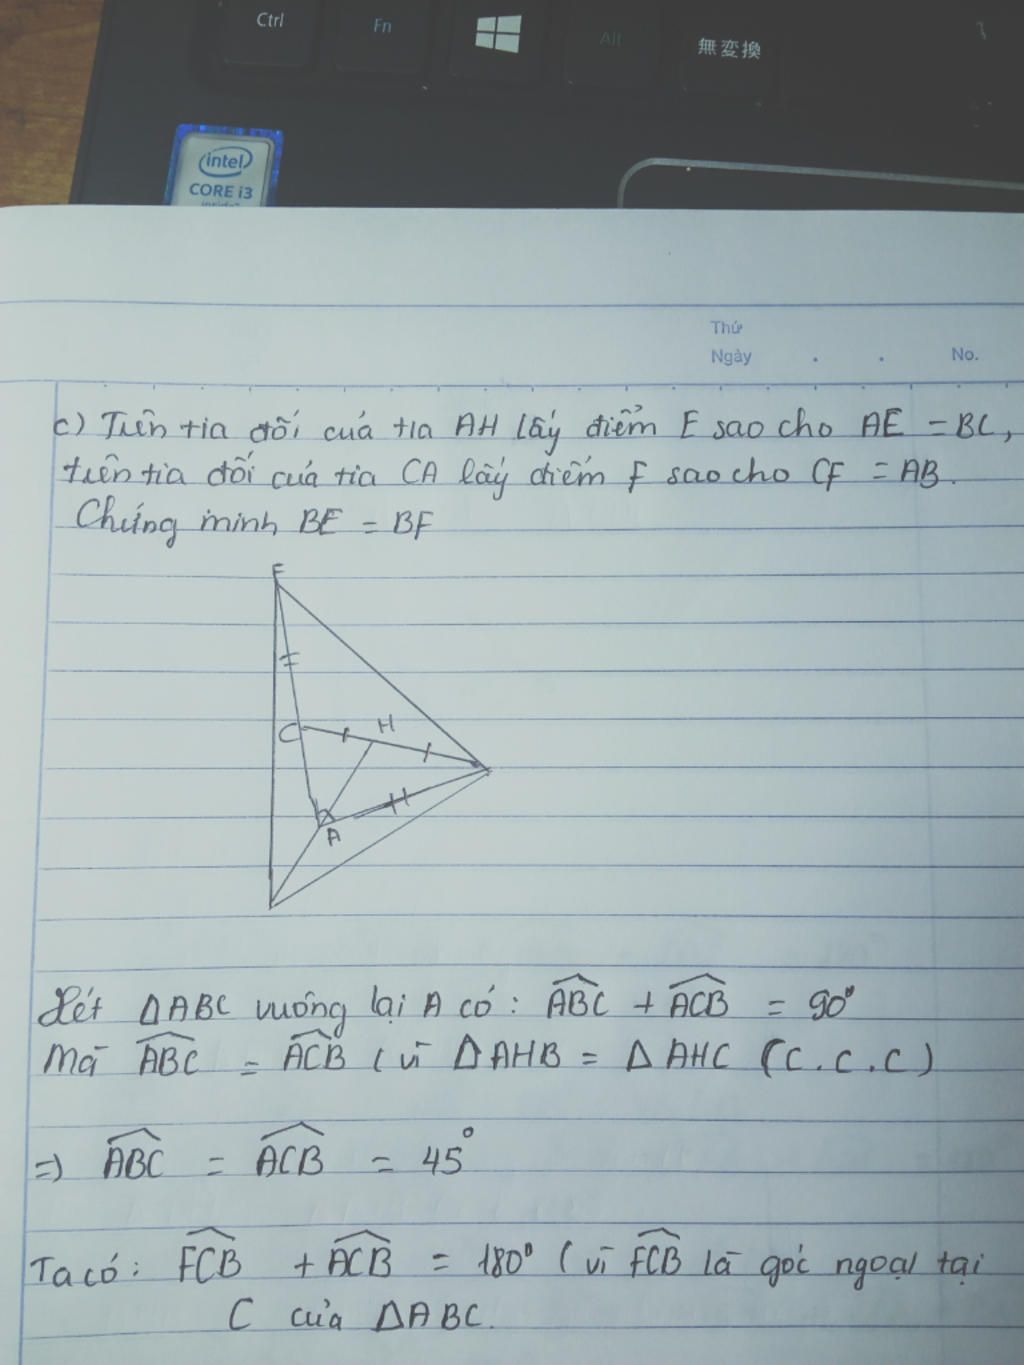 Ctrl
Fn
Alt
無変換
intel
CORE i3
inside
Thứ
Ngày . . No.
c) Trên tia đối của tia AH lấy điểm E sao cho AE = BC,
trên tia đối của tia CA lấy điểm F sao cho CF = AB.
Chứng minh BE = BF
F
C
H
A
Xét ΔABC vuông lại A có: ABC + ACB = 90°
Mà ABC = ACB ( vì ΔAHB = ΔAHC (C.C.C)
=> ABC = ACB = 45°
Ta có: FCB + ACB = 180° ( vì FCB là góc ngoại tại
C của ΔABC.